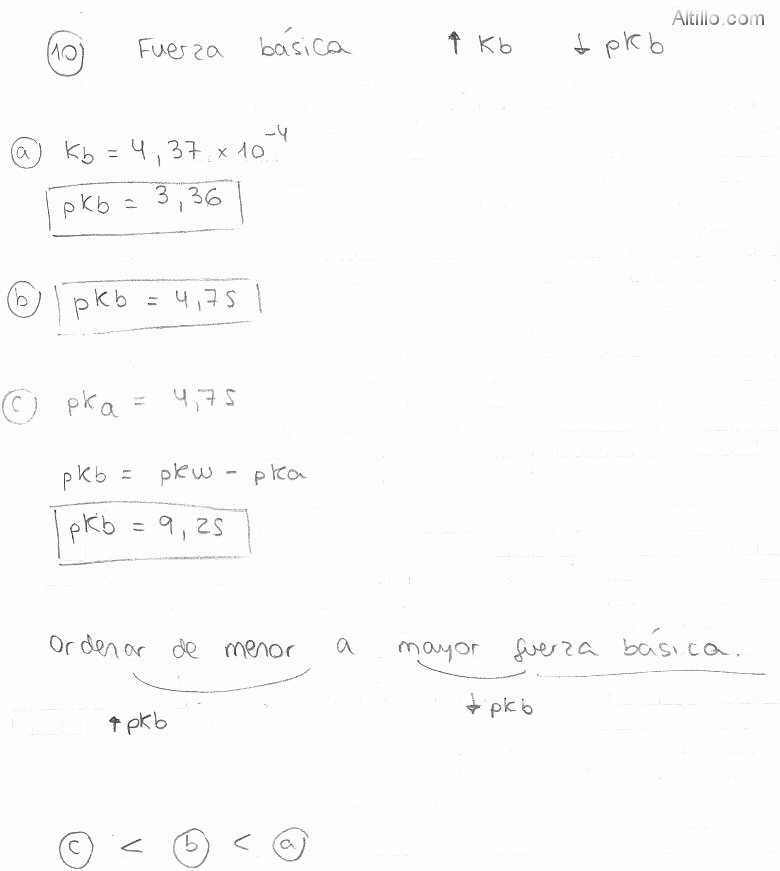 Altillo.com
10) Fuerza básica ↑ Kb ↓ pKb
a) Kb = 4,37 × 10⁻⁴
pKb = 3,36
b) pKb = 4,75
c) pKa = 4,75
pKb = pKw - pKa
pKb = 9,25
Ordenar de menor a mayor fuerza básica.
↑ pKb ↓ pKb
c < b < a